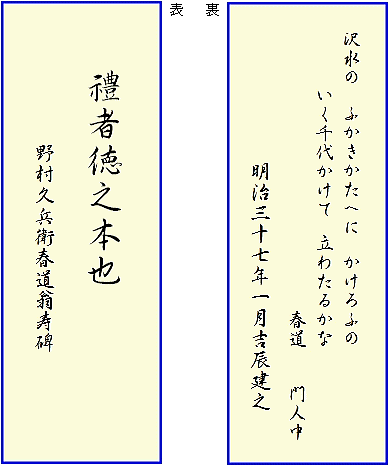 表 裏
禮者徳之本也
野村久兵衛春道翁寿碑
沢水の ふかきかたへに かけろふの
いく千代かけて 立わたるかな
春道 門人中
明治三十七年一月吉辰建之